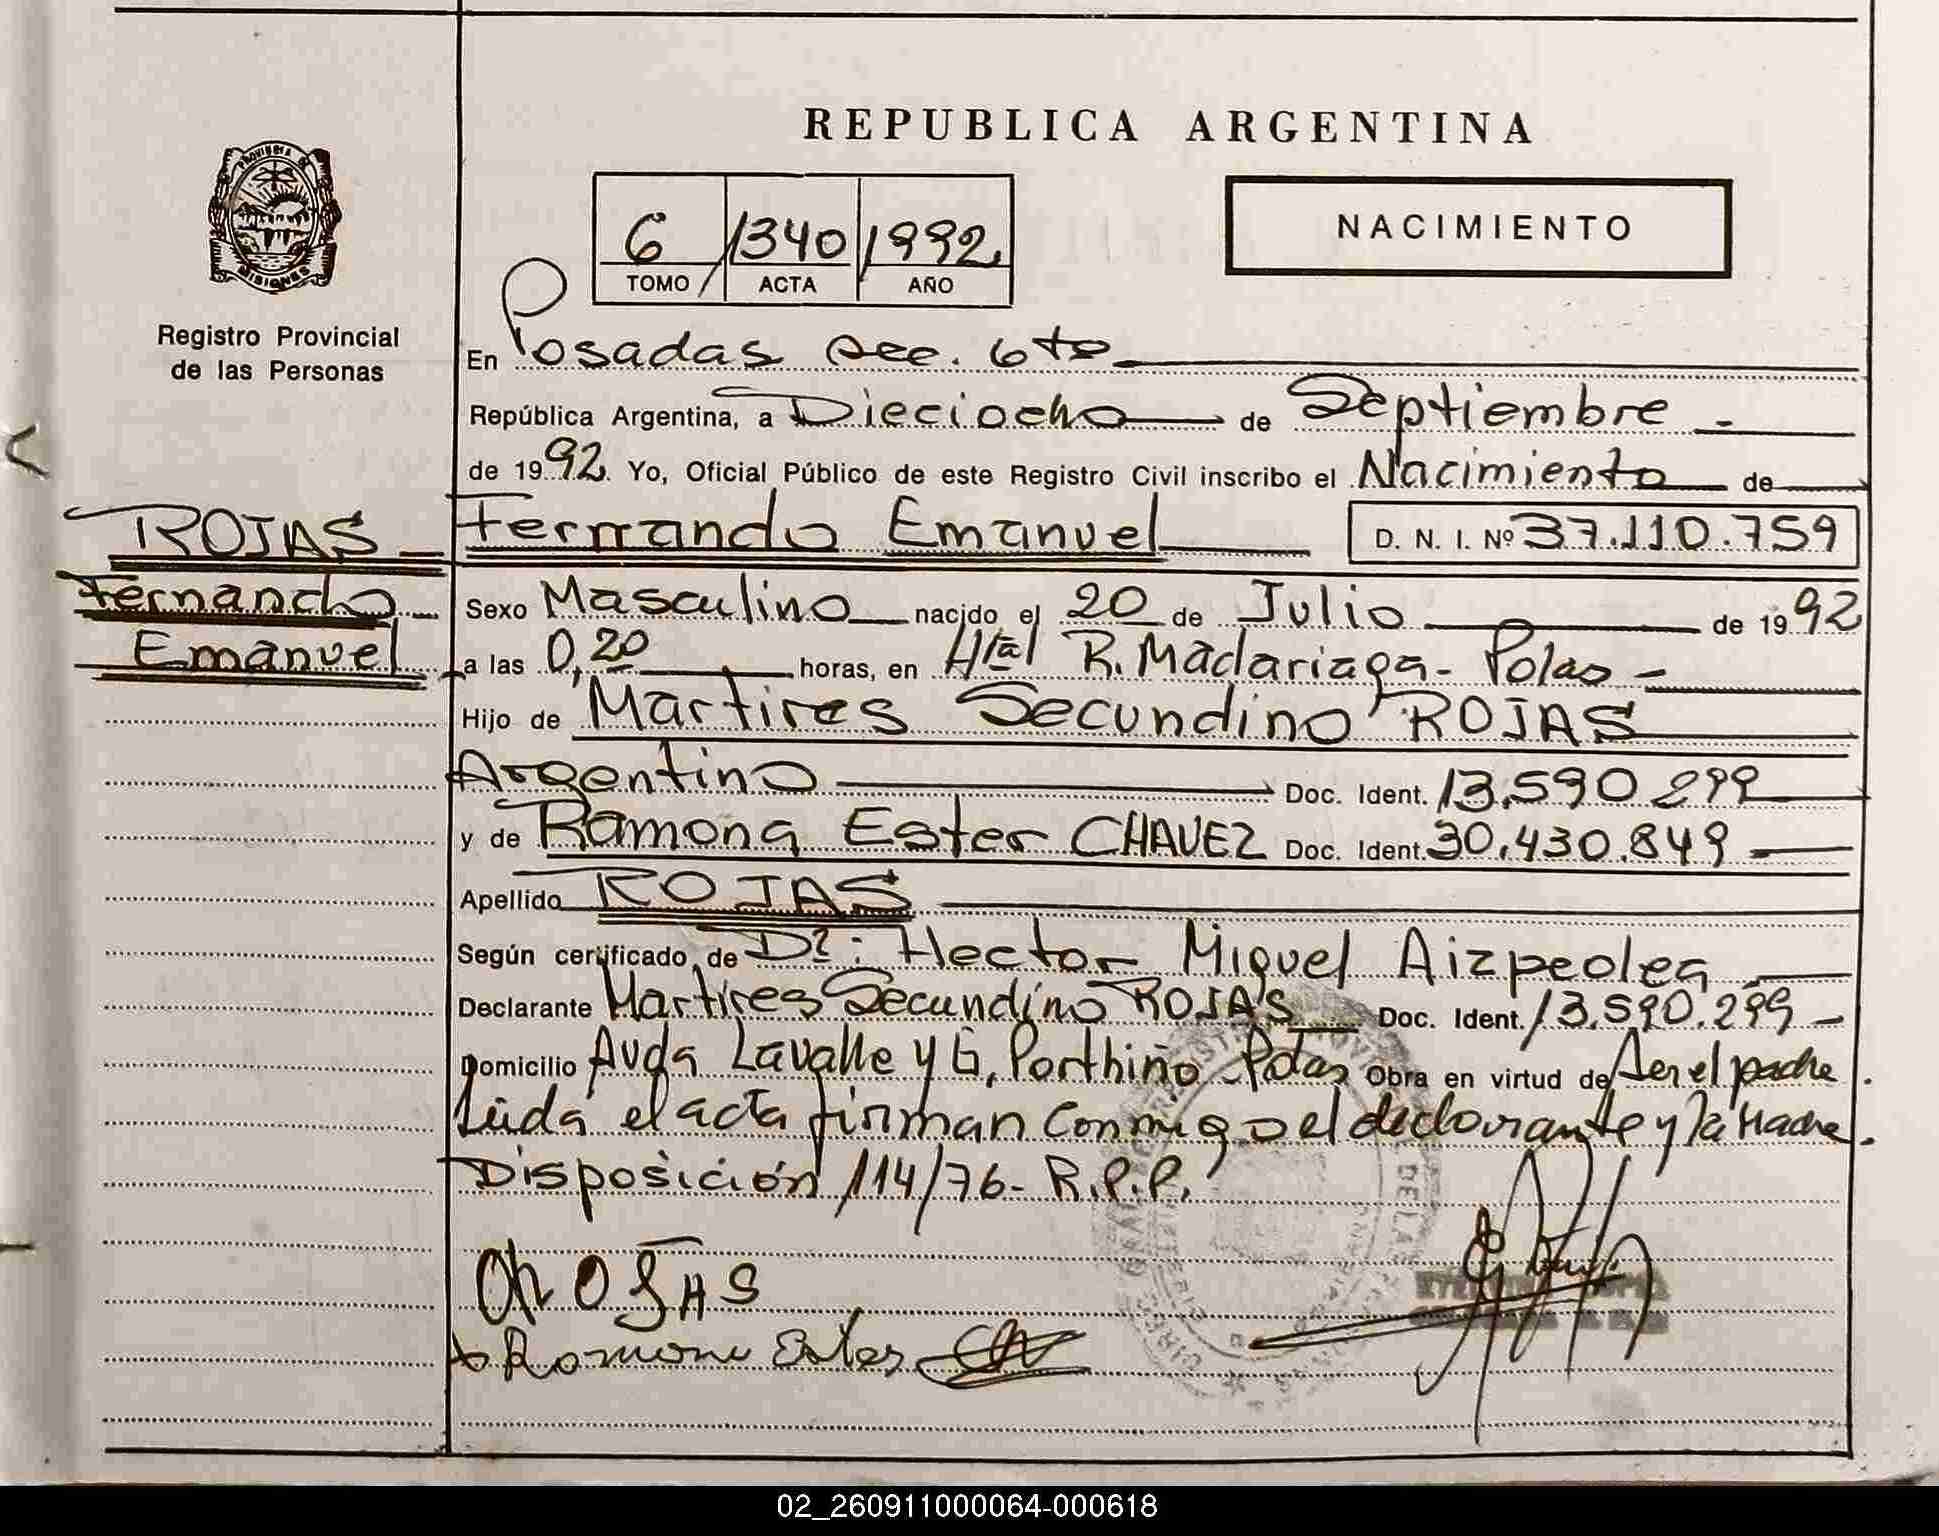 REPUBLICA ARGENTINA
PROVINCIA DE MISIONES
Registro Provincial
de las Personas
6 1340 1992
TOMO ACTA AÑO
NACIMIENTO
En Posadas sec. 6ta
República Argentina, a Dieciocho de Septiembre
de 1992. Yo, Oficial Público de este Registro Civil inscribo el Nacimiento de
ROJAS
Fernando
Emanuel
Fernando Emanuel D. N. I. Nº 37.110.759
Sexo Masculino nacido el 20 de Julio de 1992
a las 0,20 horas, en Htal R. Madariaga - Pdas -
Hijo de Martires Secundino ROJAS
Argentino Doc. Ident. 13.590.299
y de Ramona Ester CHAVEZ Doc. Ident. 30.430.849
Apellido ROJAS
Según certificado de Dr: Hector Miguel Aizpeolea
Declarante Martires Secundino ROJAS Doc. Ident. 13.590.299
Domicilio Avda Lavalle y G, Porthiño - Pdas Obra en virtud de Ser el padre.
Leida el acta firman conmigo el declarante y la Madre.
Disposición 114/76 - R.P.P.
ROJAS
Ramona Ester
02_260911000064-000618